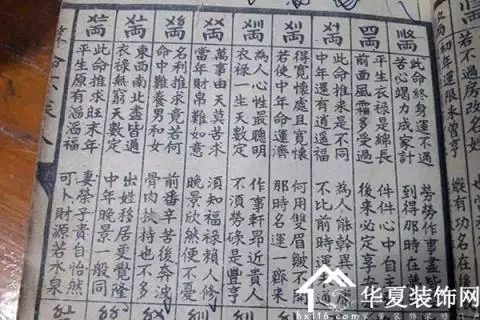 初年運限未曾亨
縱有功名在
若不過房改名姓
兩
此命終身運不通
勞勞作事盡
苦心竭力成家計
到得那時在
兩
平生衣祿是綿長
件件心中自
前面風霜多受過
後來必定享
兩
此命推來是不同
為人能幹異
中年還有逍遥福
不比前時運
兩
得寬懷處且寬懷
何用雙眉皺不開
若使中年命運濟
那時名運一齊來
兩
為人心性最聰明
作事軒昂近貴人
衣祿一生天數定
不須勞碌是豐亨
兩
萬事由天莫苦求
須知福祿賴人修
當年財帛難如意
晚景欣然便不憂
兩
名利推求竟若何
前番辛苦後奔波
命中難養男和女
骨肉扶持也不多
兩
東西南北盡皆通
出姓移居更覺隆
衣祿無窮天數定
中年晚景一般同
兩
此命推求旺末年
妻榮子貴自怡然
平生原有滔滔福
可卜財源若水泉
华夏装饰网